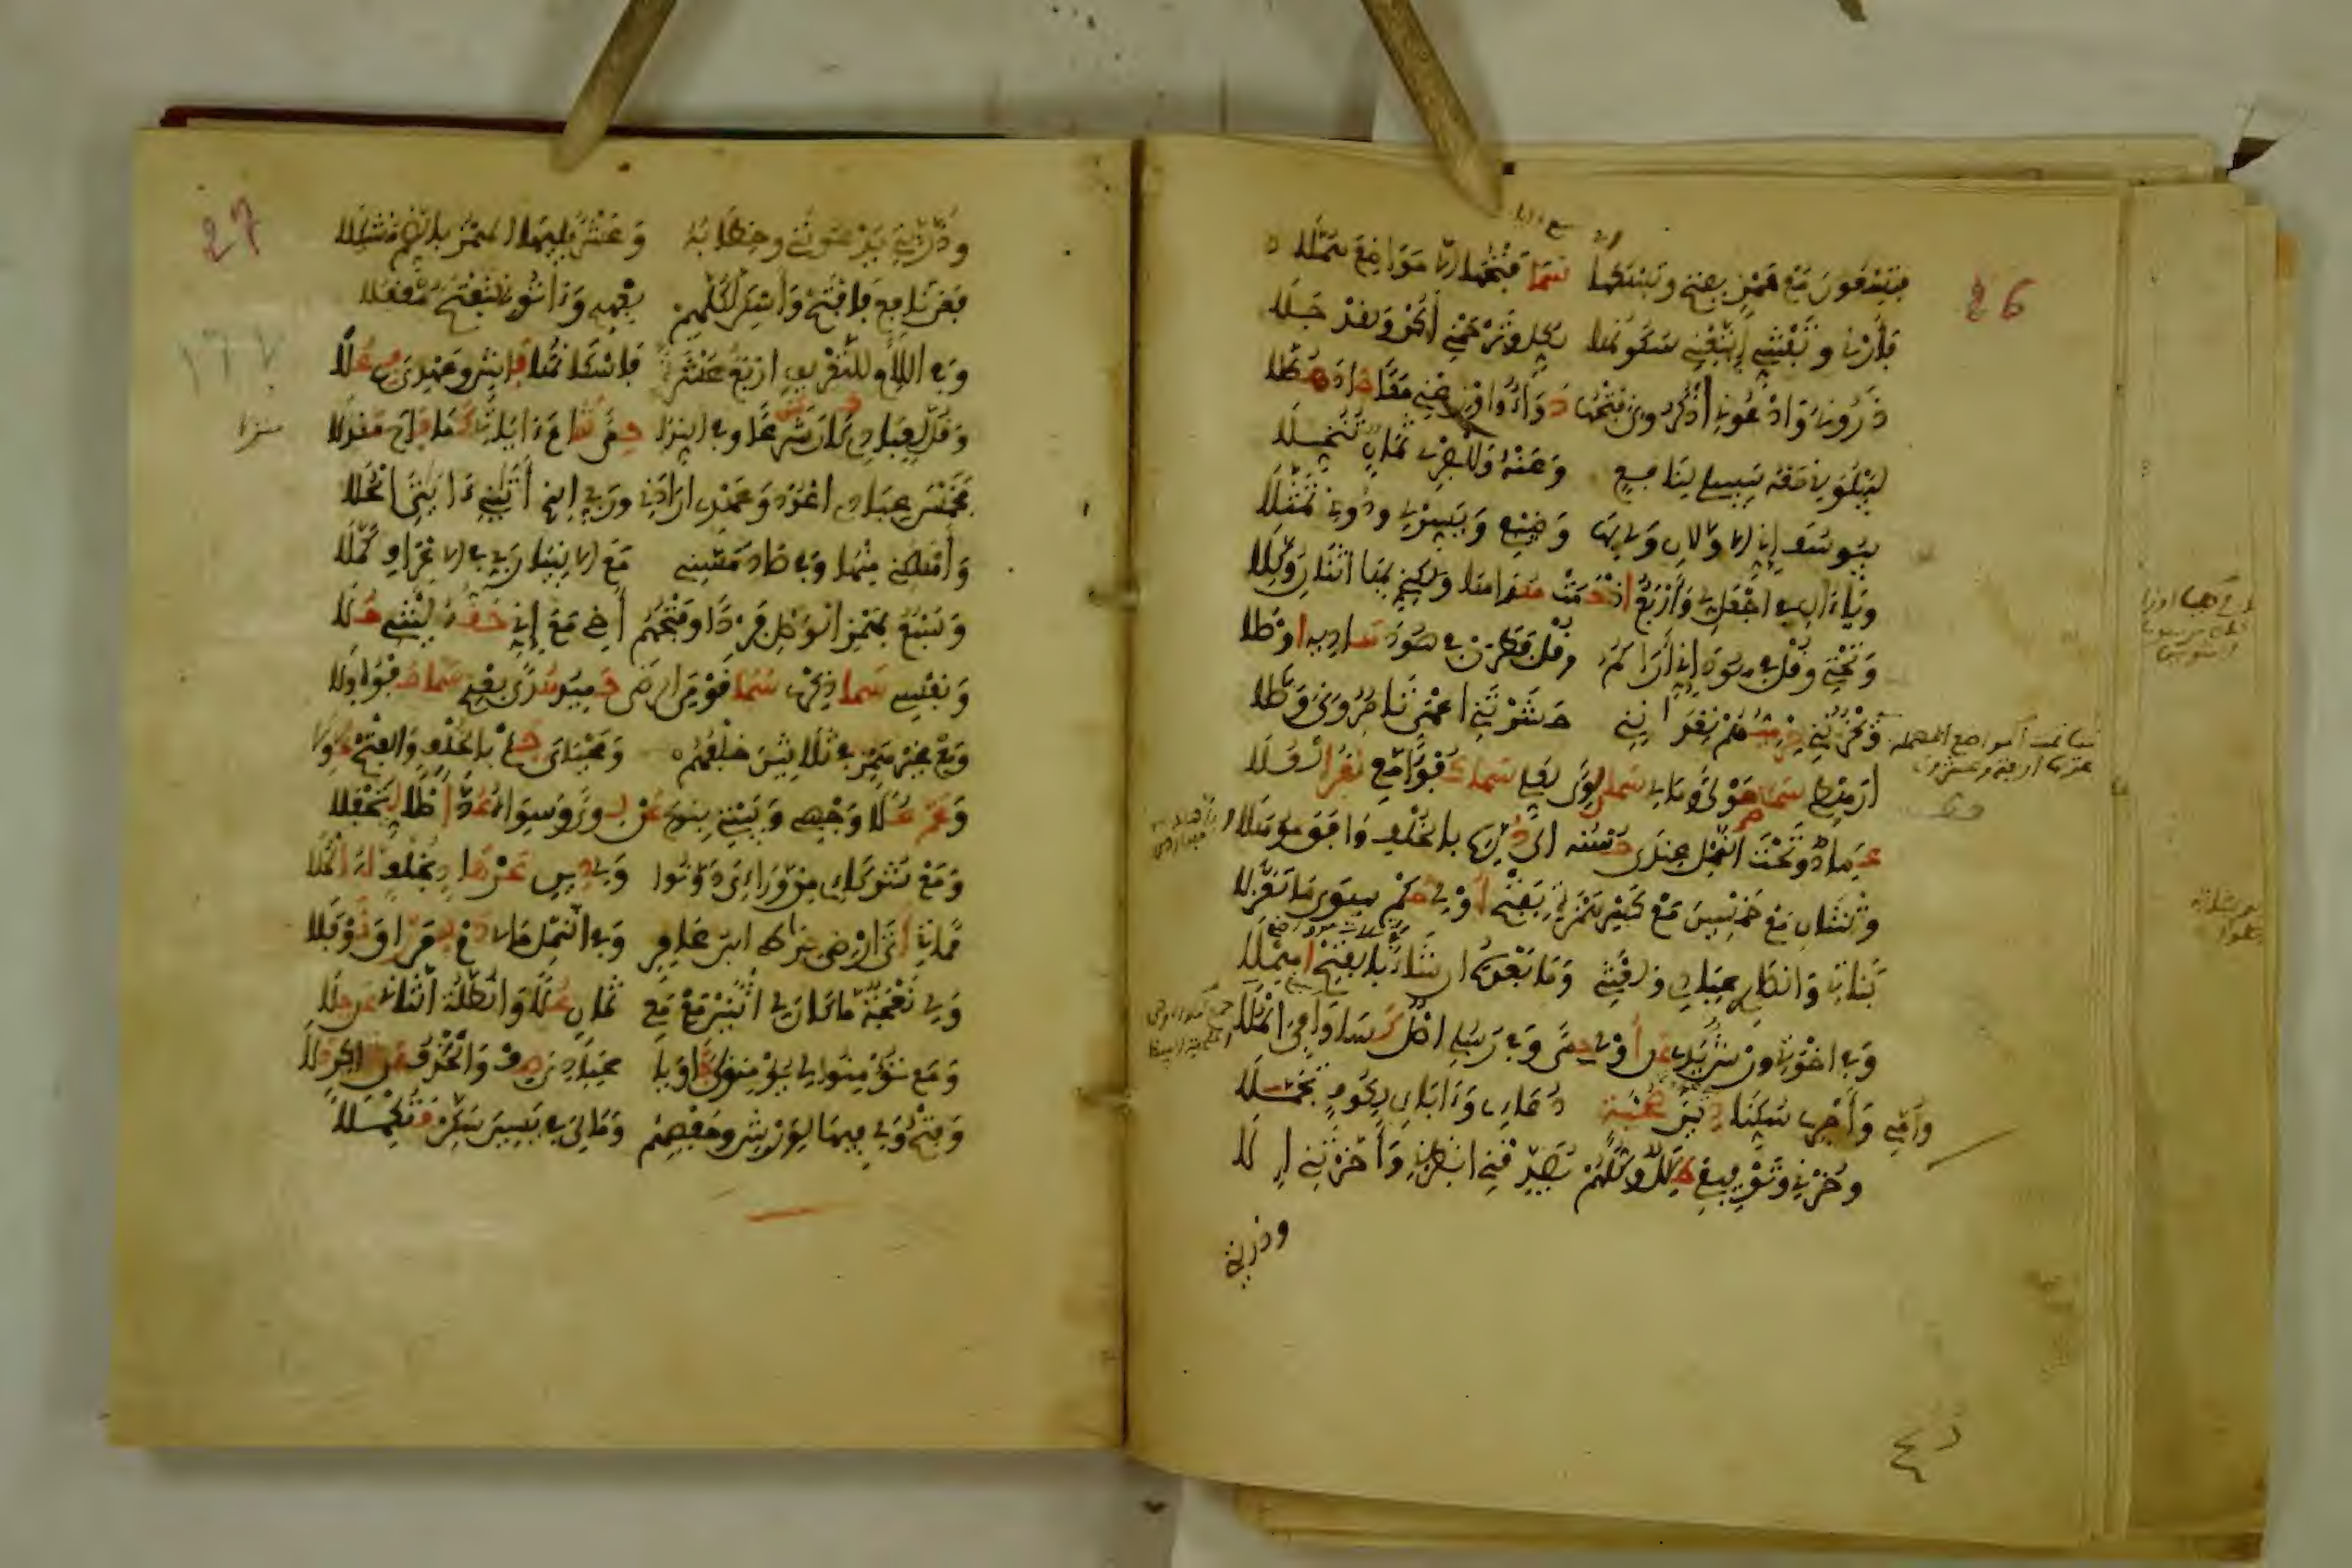 26
فتسعون مع همز بفتح وتسعها سما فتحها إلا مواضع هملا
فأرني وتفتني اتبعني سكونها لكل وترحمني أكن ولقد جلا
ذروني وادعوني اذكروني فتحها دواء وأوزعني معا جاد هطلا
ليبلوني معه سبيلي لنافع وعنه وللبصري ثمان تنخلا
بيوسف إني الأولان ولي بها وضيفي ويسر لي ودوني تمثلا
وياءان في اجعل لي وأربع إذ حمت هداها ولكني بها اثنان وكلا
وتحتي وقل في هود إني أراكم وقل فطرن في هود هاديه أوصلا
ويحزنني حرميهم تعدانني حشرتني أعمى تأمروني وصلا
أرهطي سما مولى ومالي سما لوى لعلي سما كفوا معي نفر العلا
عماد وتحت النمل عندي حسنه إلى دره بالخلف وافق موهلا
وثنتان مع خمسين مع كسر همزة بفتح أولي حكم سوى ما تعزلا
بناتي وأنصاري عبادي ولعنتي وما بعده إن شاء بالفتح أهملا
وفي إخوتي ورش يدي عن أولي حمى وفي رسلي أصل كسا وافي الملا
وأمي وأجري سكنا دين صحبة دعائي وآبائي لكوف تجملا
وحزني وتوفيقي ظلال وكلهم يصدقني انظرني وأخرتني إلى
وذريتي
27
وذريتي يدعونني وخطابه وعشر يليها الهمز بالضم مشكلا
فعن نافع فافتح وأسكن لكلهم بعهدي وآتوني لتفتح مقفلا
وفي اللام للتعريف أربع عشرة فإسكانها فاش وعهدي في علا
وقل لعبادي كان شرعا وفي الندا حمى شاع آياتي كما فاح منزلا
فخمس عبادي اعدد وعهدي أرادني وربي الذي آتاني آياتي الحلا
وأهلكني منها وفي صاد مسني مع الأنبيا ربي في الأعراف كملا
وسبع بهمز الوصل فردا وفتحهم أخي مع إني حقه ليتني حلا
ونفسي سما ذكري سما قومي الرضى حميد هدى بعدي سما صفوه ولا
ومع غير همز في ثلاثين خلفهم ومحياي جئ بالخلف والفتح خولا
وعم علا وجهي وبيتي بنوح عن لوى وسواه عد أصلا ليحفلا
ومع شركائي من ورائي دونوا ولي دين عن هاد بخلف له الحلا
مماتي أتى أرضي صراطي ابن عامر وفي النمل مالي دم لمن راق نوفلا
ولي نعجة ما كان لي اثنين مع معي ثمان علا والظلة الثان عن جلا
ومع تؤمنوا لي يؤمنوا بي جا ويا عبادي صف والحذف عن شاكر دلا
وفتح ولي فيها لورش وحفصهم ومالي في يس سكن فتكملا